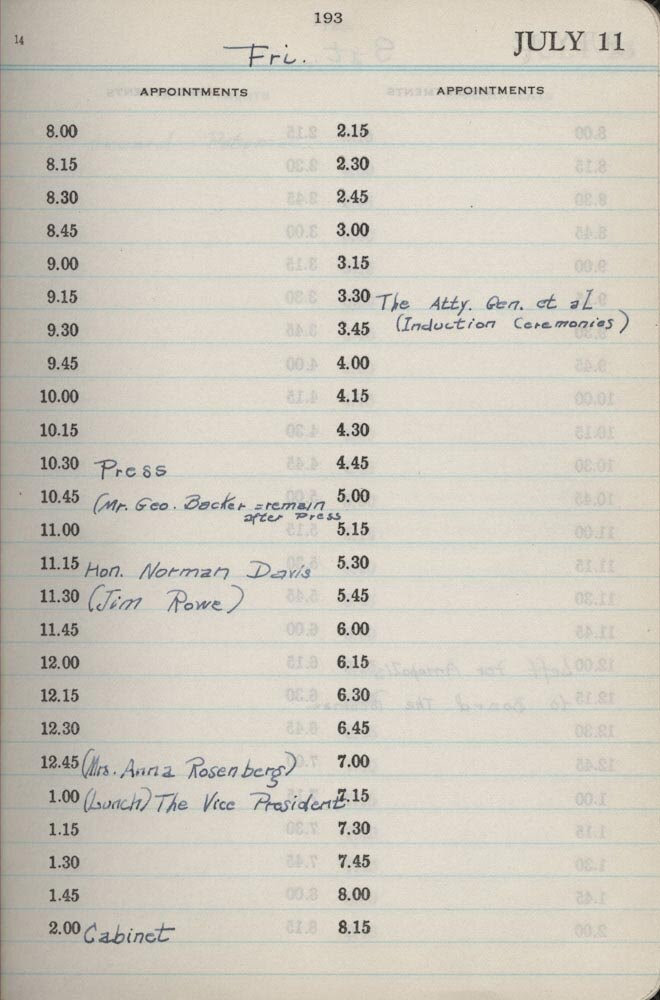 193
14
Fri.
JULY 11
APPOINTMENTS
8.00
8.15
8.30
8.45
9.00
9.15
9.30
9.45
10.00
10.15
10.30 Press
10.45 (Mr. Geo. Backer = remain
after Press
11.00
11.15 Hon. Norman Davis
11.30 (Jim Rowe)
11.45
12.00
12.15
12.30
12.45 (Mrs. Anna Rosenberg)
1.00 (Lunch) The Vice President
1.15
1.30
1.45
2.00 Cabinet
APPOINTMENTS
2.15
2.30
2.45
3.00
3.15
3.30 The Atty. Gen. et al
3.45 (Induction Ceremonies)
4.00
4.15
4.30
4.45
5.00
5.15
5.30
5.45
6.00
6.15
6.30
6.45
7.00
7.15
7.30
7.45
8.00
8.15